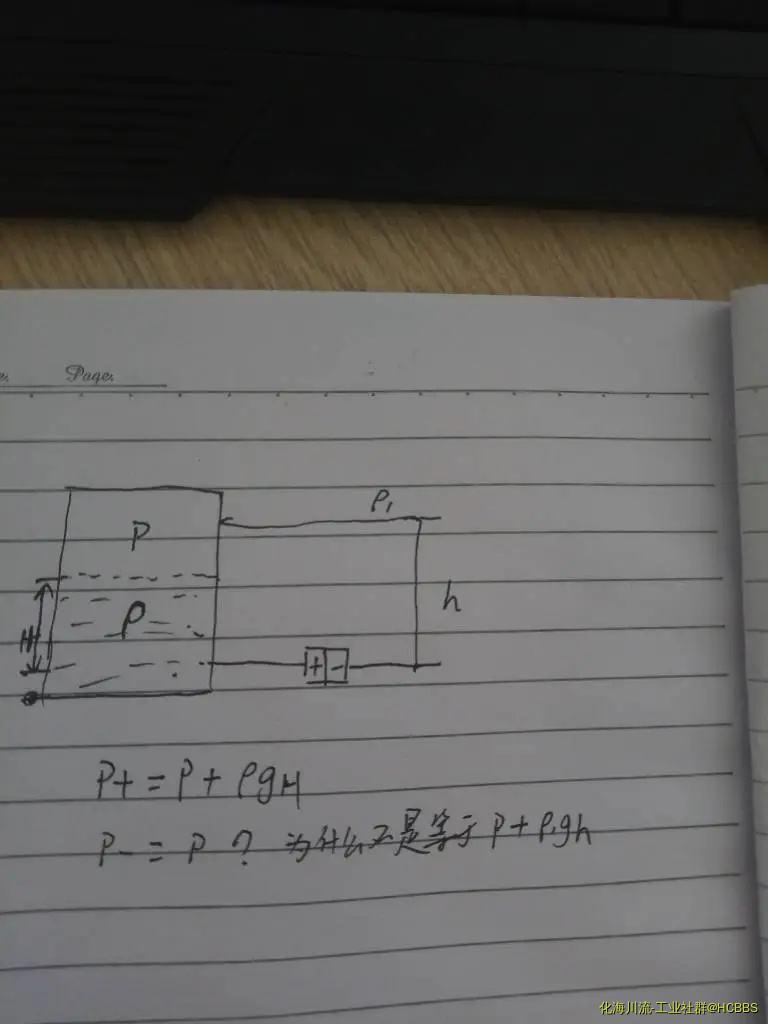 Page:
P
ρ₁
H
ρ
h
+ -
P+ = P + ρgH
P- = P ? 为什么不是等于 P + ρ₁gh
化海川流-工业社群@HCBBS